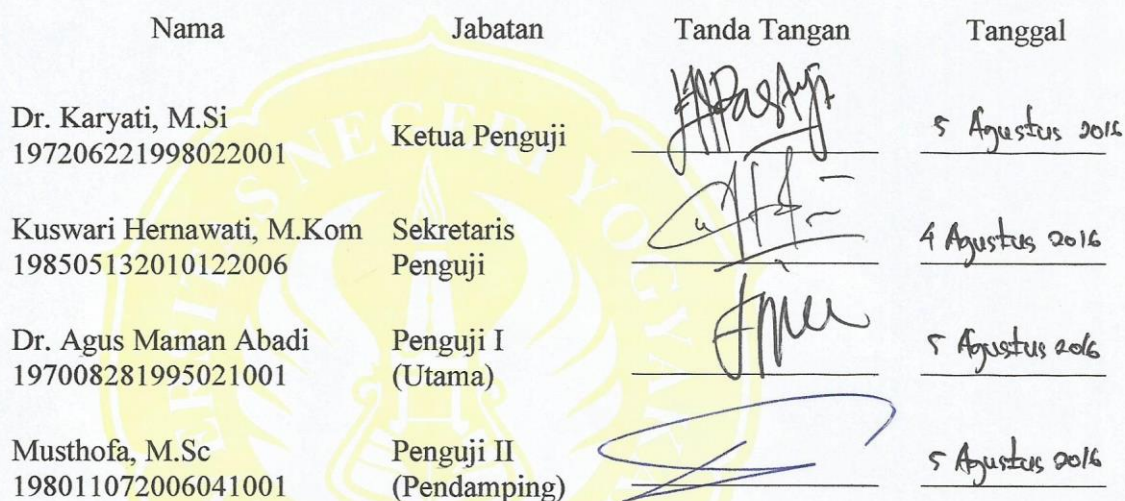 Nama Jabatan Tanda Tangan Tanggal
Dr. Karyati, M.Si
197206221998022001
Ketua Penguji
5 Agustus 2016
Kuswari Hernawati, M.Kom
198505132010122006
Sekretaris
Penguji
4 Agustus 2016
Dr. Agus Maman Abadi
197008281995021001
Penguji I
(Utama)
5 Agustus 2016
Musthofa, M.Sc
198011072006041001
Penguji II
(Pendamping)
5 Agustus 2016
ERSITAS NEGERI YOGYAK